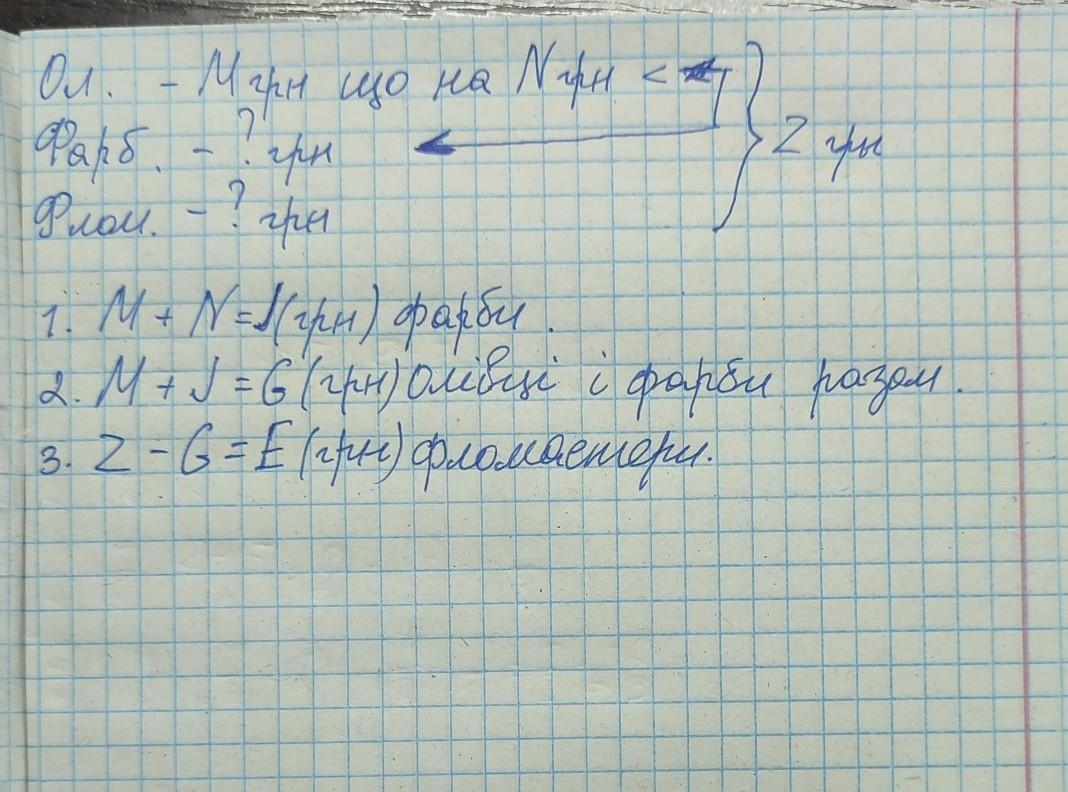 Ол. - М грн що на N грн <
Фарб. - ? грн
Флом. - ? грн
} Z грн
1. М + N = J (грн) фарби.
2. М + J = G (грн) олівці і фарби разом.
3. Z - G = E (грн) фломастери.